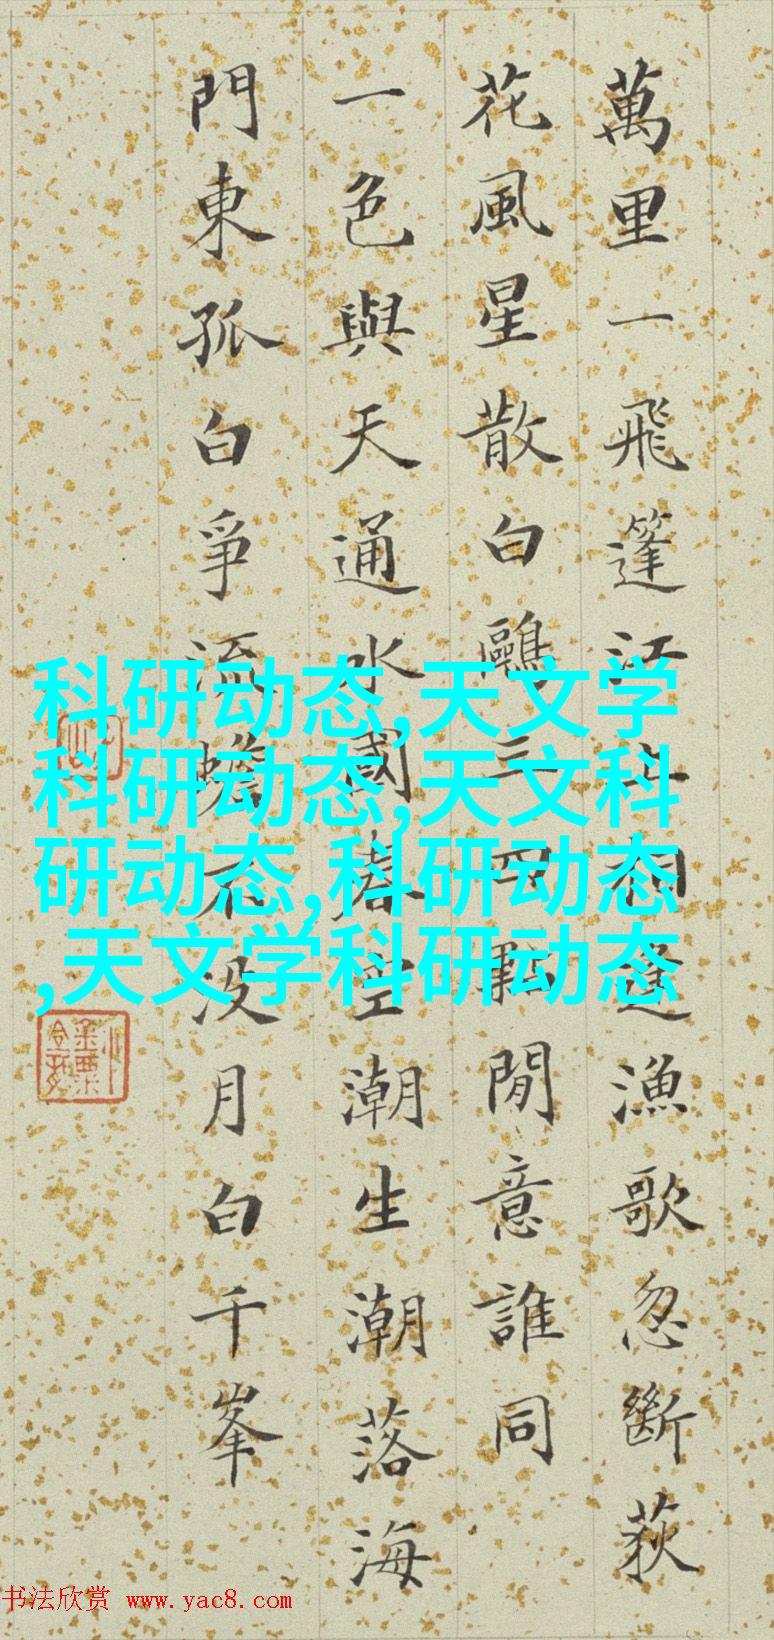 萬里一飛篷江上相逢漁歌忽斷荻
花風星散白鷗三四點閒意誰同
一色與天通水國春空潮生潮落海
門東孤白爭流蟾不没月白千峯
科研动态,天文学
科研动态,天文科
研动态,科研动态
,天文学科研动态
书法欣赏 www.yac8.com